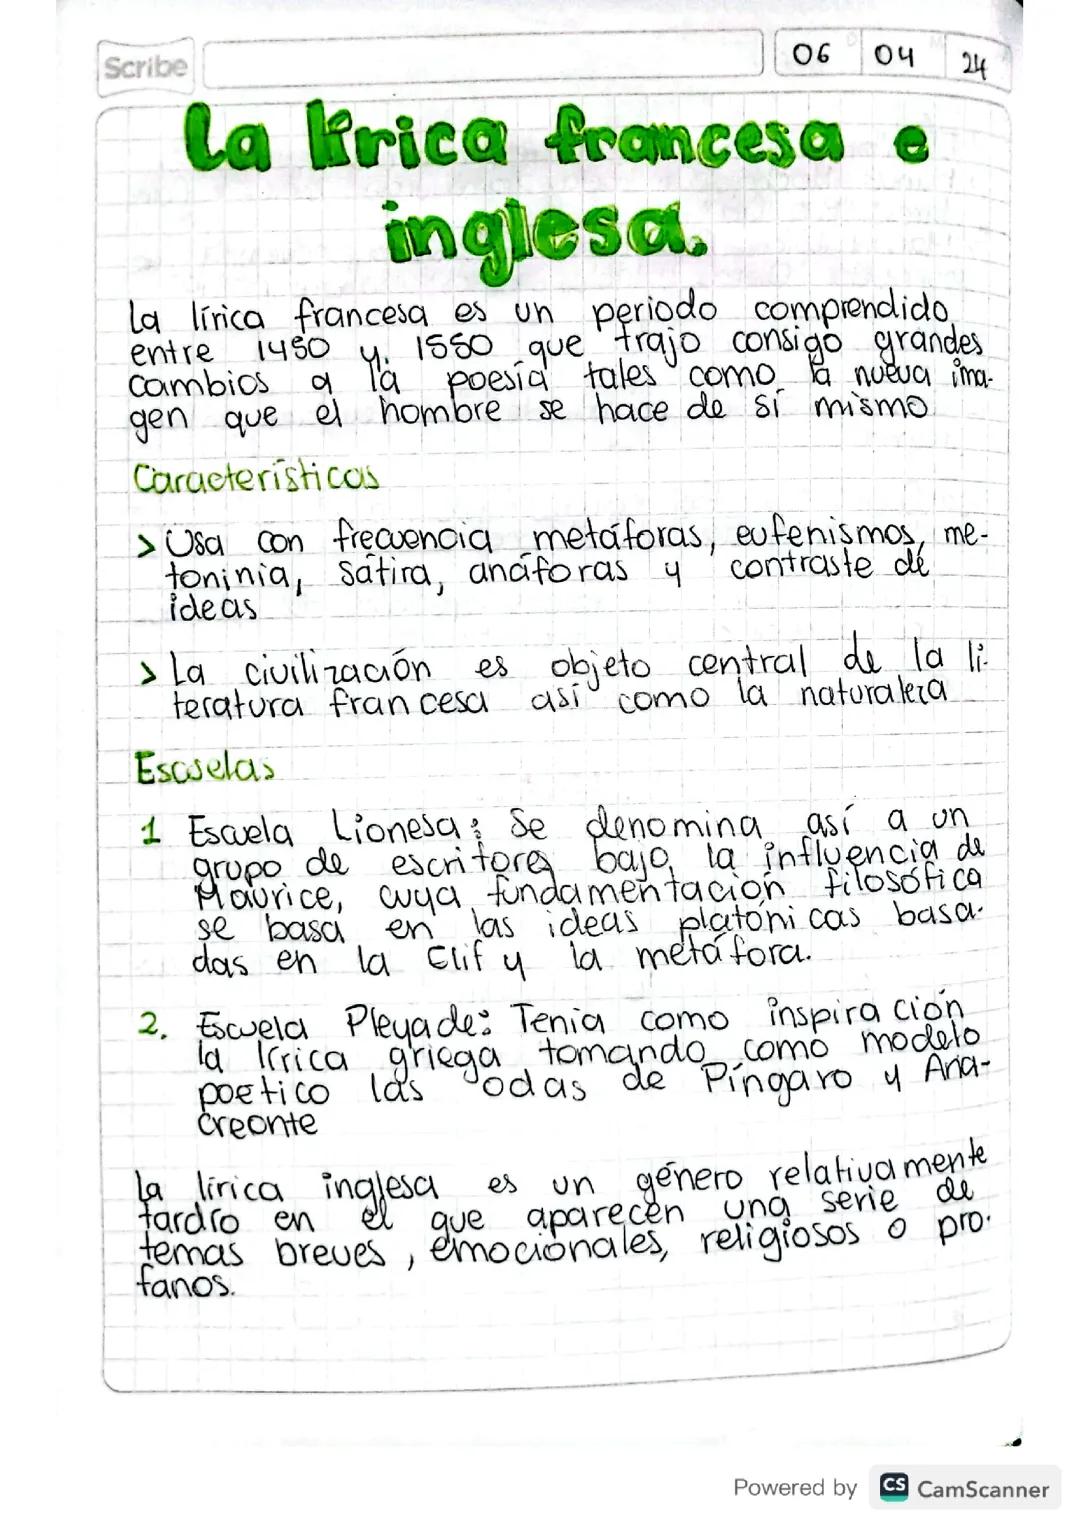 Scribe
06 04 24
La lírica francesa e
inglesa.
La lírica francesa es un periodo comprendido
entre 1450 y 1550 que trajo consigo grandes
cambios a la poesía tales como la nueva ima-
gen que el hombre se hace de sí mismo
Características
> Usa con frecuencia metáforas, eufenismos, me-
toninia, sátira, anáforas y contraste de
ideas
> La civilización es objeto central de la li-
teratura francesa así como la naturaleza
Escuelas
1 Escuela Lionesa: Se denomina así a un
grupo de escritores bajo la influencia de
Maurice, cuya fundamentación filosófica
se basa en las ideas platónicas basa-
das en la Elif y la metáfora.
2. Escuela Pleyade: Tenia como inspiración
la lírica griega tomando como modelo
poetico las odas de Píngaro y Ana-
creonte
La lírica inglesa es un género relativamente
tardío en el que aparecen una serie de
temas breves, emocionales, religiosos o pro-
fanos.
Powered by CS CamScanner